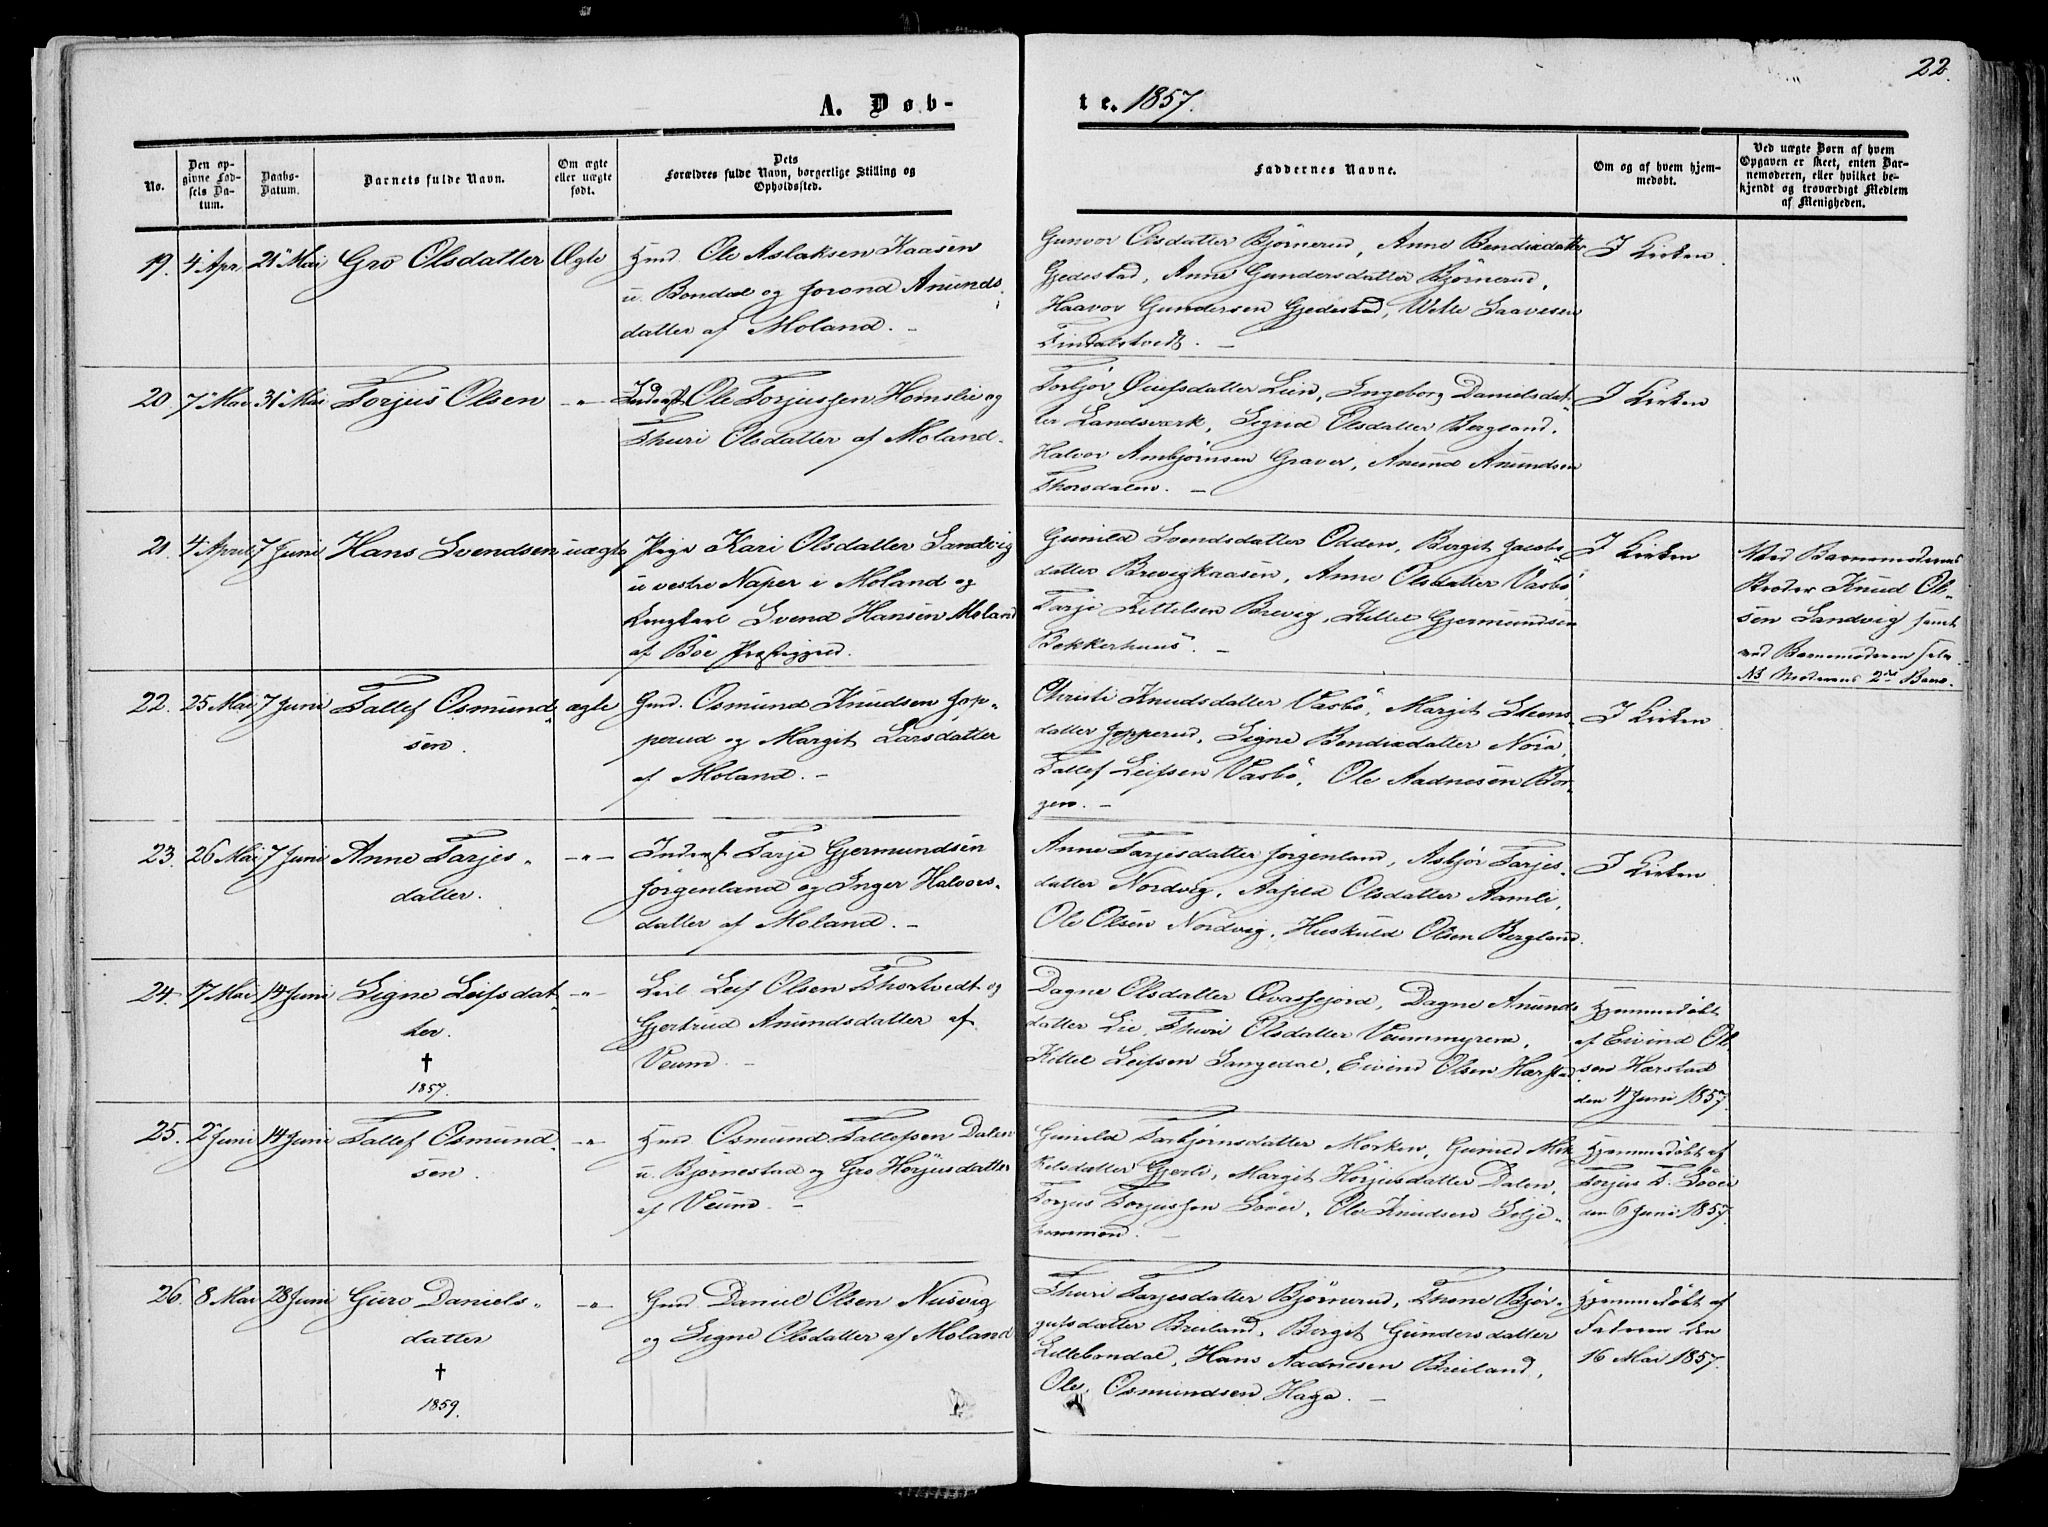 22.
A. Døb-
te. 1857.
No.
Den op-
givne Fød-
sels Da-
tum.
Daabs-
Datum.
Barnets fulde Navn.
Om ægte
eller uægte
født.
Dets
Forældres fulde Navn, borgerlige Stilling og
Opholdssted.
Faddernes Navne.
Om og af hvem hjem-
medøbt.
Ved uægte Børn af hvem
Opgaven er skeet, enten Bar-
nemoderen, eller hvilket be-
kjendt og troværdigt Medlem
af Menigheden.
19. 4 Apr. 21 Mai Gro Olsdatter Ægte
Hmd. Ole Aslaksen Kaasen
u. Bondal og Jorond Anunds-
datter af Moland. -
Gunvor Olsdatter Bjørnerud, Anne Bendixdatter
Gjedestad, Anne Gundersdatter Bjørnerud,
Haavor Gundersen Gjedestad, Saavesen
Findalstvedt. -
I Kirken.
20. 7 Mai 31 Mai Torjus Olsen -"-
Inderst Ole Torjussen Homslie og
Thuri Olsdatter af Moland.
Torbjør Lien, Ingeborg Danielsdat-
ter Landsværk, Sigrid Olsdatter Bergsand,
Halvor Ambjørnsen Graver, Anund Anundsen
Thorsdalen. -
I Kirken
21. 4 April 7 Juni Hans Svendsen uægte
Pige Kari Olsdatter Sandvig
u vestre Naper i Moland og
Ungkarl Svend Hansen Moland
af Böe Præstegjeld.
Gunild Svendsdatter Odden, Bergit Jacobs-
datter Brevigkaasen, Anne Olsdatter Vasbö,
Tarje Kittelsen Brevig, Kittel Gjermundsen
Bekkerhuus. -
I Kirken
Ved Barnemoderens
Broder Knud Ol-
sen Sandvig samt
ved Barnemoderen selv.
NB Moderens 2det Barn.
22. 25 Mai 7 Juni Tallef Osmund- ægte
sen.
Gmd. Osmund Knudsen Jop-
perud og Margit Larsdatter
af Moland. -
Christi Knudsdatter Vasbö, Margit Steens-
datter Jopperud, Signe Bendixdatter Nora,
Tallef Leifsen Vasbö, Ole Aadnesen Bor-
gen. -
I Kirken
23. 26 Mai 7 Juni Anne Tarjes- -"-
datter.
Inderst Tarje Gjermundsen
Jörgenland og Inger Halvors-
datter af Moland. -
Anne Tarjesdatter Jörgenland, Asbjør Tarjes-
datter Nordvig, Aasild Olsdatter Aamli,
Ole Olsen Nordvig, Huskuld Olsen Bergland.
I Kirken
24. 7 Mai 14 Juni Signe Leifsdat- -"-
ter.
†
1857.
Leil. Leif Olsen Thortvedt og
Gjertrud Anundsdatter af
Veum. -
Dagne Olsdatter Qvasfejord, Dagne Anunds-
datter Lie, Thuri Olsdatter Veummyrene,
Kittel Leifsen Langedal, Eivind Olsen Hærstad.
Hjemmedøbt
af Eivind Ol-
sen Hærstad
den 4 Juni 1857.
25. 2 Juni 14 Juni Tallef Osmund- -"-
sen.
Hmd. Osmund Tallefsen Dalen
u. Bjørnestad og Gro Hörjusdatter
af Veum. -
Gunild Torbjørnsdatter Morken, Gunild Mik-
kelsdatter Gjerli, Margit Hörjusdatter Dalen,
Torjus Torjussen Söver, Ole Knudsen Selje-
hommen. -
Hjemmedøbt af
Torjus T. Söver
den 6 Juni 1857.
26. 8 Mai 28 Juni Guro Daniels- -"-
datter
†
1859.
Gmd. Daniel Olsen Nusvig
og Signe Olsdatter af Moland
Thuri Tarjesdatter Bjørnerud, Thone Bjør-
gufsdatter Breiland, Bergit Gundersdatter
Lillebondal, Hans Aadnesen Breiland,
Ole Osmundsen Haga. -
Hjemmedøbt af
Faderen den
16 Mai 1857.